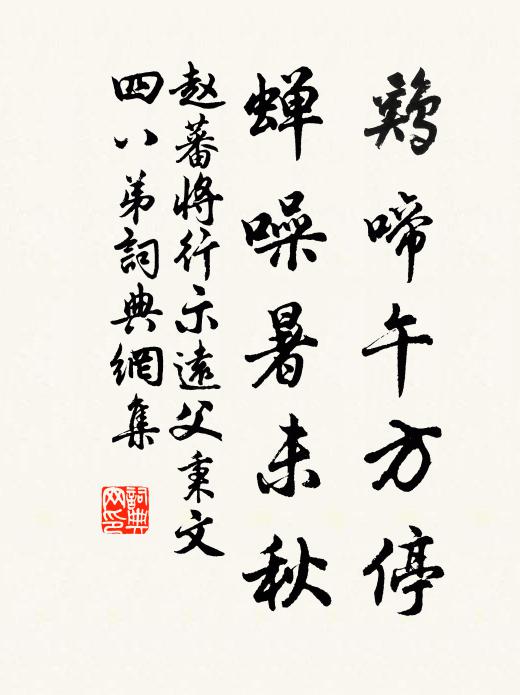 鷄啼午方停
蝉噪暑未秋
赵蕃将行示遠父秉文
四八弟詞典網集
詞典网印